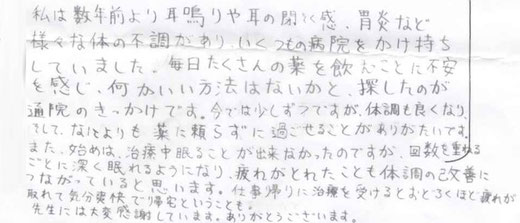 私は数年前より耳鳴りや耳の閉そく感、胃炎など
様々な体の不調があり、いくつもの病院をかけ持ち
していました。毎日たくさんの薬を飲むことに不安
を感じ、何かいい方法はないかと、探したのが
通院のきっかけです。今では少しずつですが、体調も良くなり、
そして、なによりも薬に頼らずに過せることがありがたいです。
また、始めは、治療中眠ることが出来なかったのですが、回数を重ねる
ごとに深く眠れるようになり、疲れがとれたことも体調の改善に
つながっていると思います。仕事帰りに治療を受けるとおどろくほど疲れが
取れて気分爽快で帰宅ということも。
先生には大変感謝しています。ありがとうございます。